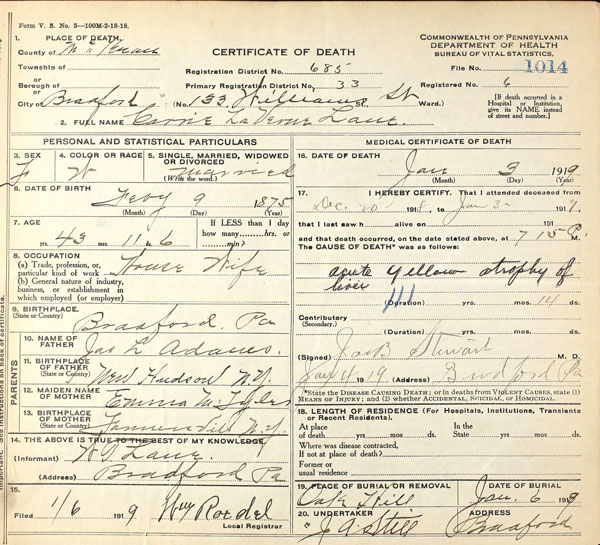 Form V. S. No. 5—100M-2-18-18.
1. PLACE OF DEATH.
County of McKean
Township of
or
Borough of
or
City of Bradford
CERTIFICATE OF DEATH
Registration District No. 685
Primary Registration District No. 33
(No. 133 Williams St. Ward.)
COMMONWEALTH OF PENNSYLVANIA
DEPARTMENT OF HEALTH
BUREAU OF VITAL STATISTICS.
File No. 1014
Registered No. 6
[If death occurred in a Hospital or Institution, give its NAME instead of street and number.]
2. FULL NAME Carrie LaVerne Lane.
PERSONAL AND STATISTICAL PARTICULARS
3. SEX
F
4. COLOR OR RACE
W
5. SINGLE, MARRIED, WIDOWED OR DIVORCED
Married
(Write the word.)
6. DATE OF BIRTH
Feby 9 1875
(Month) (Day) (Year)
7. AGE
43 yrs. 11 mos. 6
If LESS than 1 day how many hrs. or min.?
8. OCCUPATION
(a) Trade, profession, or particular kind of work House Wife
(b) General nature of industry, business, or establishment in which employed (or employer)
9. BIRTHPLACE
(State or Country)
Bradford. Pa
PARENTS
10. NAME OF FATHER
Jas L Adams.
11. BIRTHPLACE OF FATHER
(State or Country)
Hudson N.Y.
12. MAIDEN NAME OF MOTHER
Emma M Tyler
13. BIRTHPLACE OF MOTHER
(State or Country)
N.Y.
14. THE ABOVE IS TRUE TO THE BEST OF MY KNOWLEDGE.
(Informant) Lane.
(Address) Bradford Pa
15.
Filed 1/6 1919 Wm Roedel
Local Registrar
MEDICAL CERTIFICATE OF DEATH
16. DATE OF DEATH
Jan 3 1919
(Month) (Day) (Year)
17. I HEREBY CERTIFY, That I attended deceased from
Dec. 20 1918, to Jan 3 1919,
that I last saw h alive on 191
and that death occurred, on the date stated above, at 7 15 P M.
The CAUSE OF DEATH* was as follows:
acute yellow atrophy of
liver
(Duration) yrs. mos. 14 ds.
Contributory
(Secondary.)
(Duration) yrs. mos. ds.
(Signed) Jas B Stewart M. D.
Jan 4 19 (Address) Bradford Pa
*State the DISEASE CAUSING DEATH; or in deaths from VIOLENT CAUSES, state (1) MEANS OF INJURY; and (2) whether ACCIDENTAL, SUICIDAL, or HOMICIDAL.
18. LENGTH OF RESIDENCE (For Hospitals, Institutions, Transients or Recent Residents).
At place of death yrs. mos. ds. In the State yrs. mos. ds.
Where was disease contracted,
If not at place of death?
Former or usual residence
19. PLACE OF BURIAL OR REMOVAL
Oak Hill
DATE OF BURIAL
Jan. 6 1919
20. UNDERTAKER
J A Still
ADDRESS
Bradford